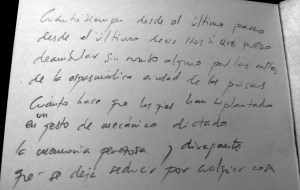 Cuánto tiempo desde el último paseo
desde el último decir hoy sí que puedo
deambular sin rumbo alguno por las calles
de la espasmódica ciudad de las prisas
Cuánto hace que los pies han implantado
un gesto de mecánico dictado
la memoria perezosa y divagante
que se deja seducir por cualquier cosa